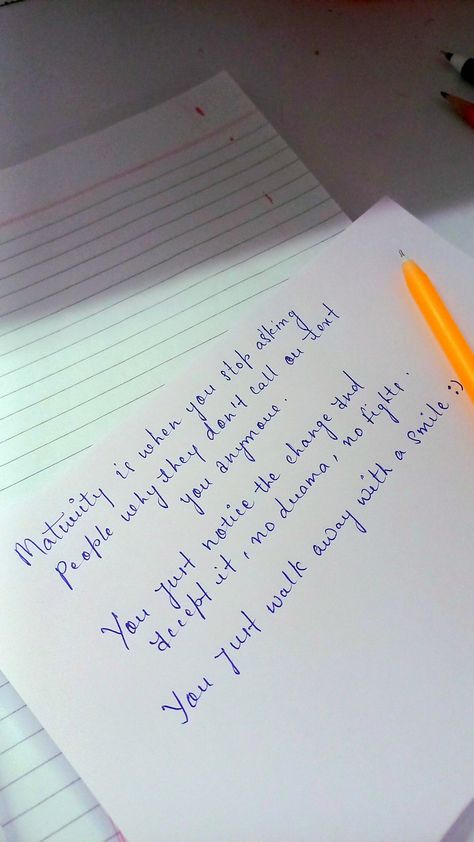 Maturity is when you stop asking
People why they don't call or text
you anymore.
You just notice the change and
accept it, no drama, no fights.
You just walk away with a smile :)